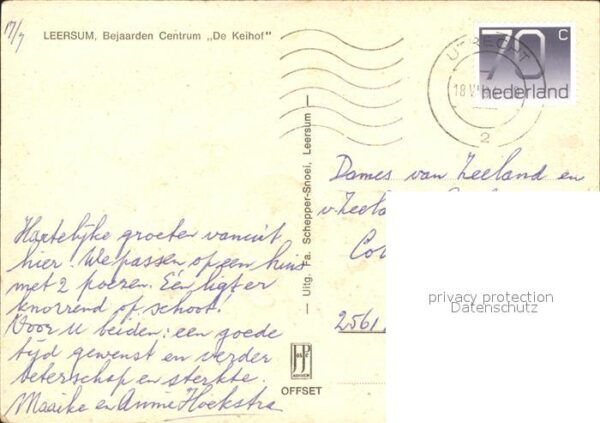 17/7
LEERSUM, Bejaarden Centrum „De Keihof"
UTRECHT
18 VII
2
70 c
nederland
Uitg. Fa. Schepper-Snoei, Leersum
Dames van Zeeland en
v. Zeela
Co
2561
privacy protection
Datenschutz
Hartelijke groeten vanuit
hier. We passen op een huis
met 2 poezen. Eén ligt er
knorrend op schoot!
Voor u beiden: een goede
tijd gewenst en verder
beterschap en sterkte.
Maaike en Annie Hoekstra
OFFSET